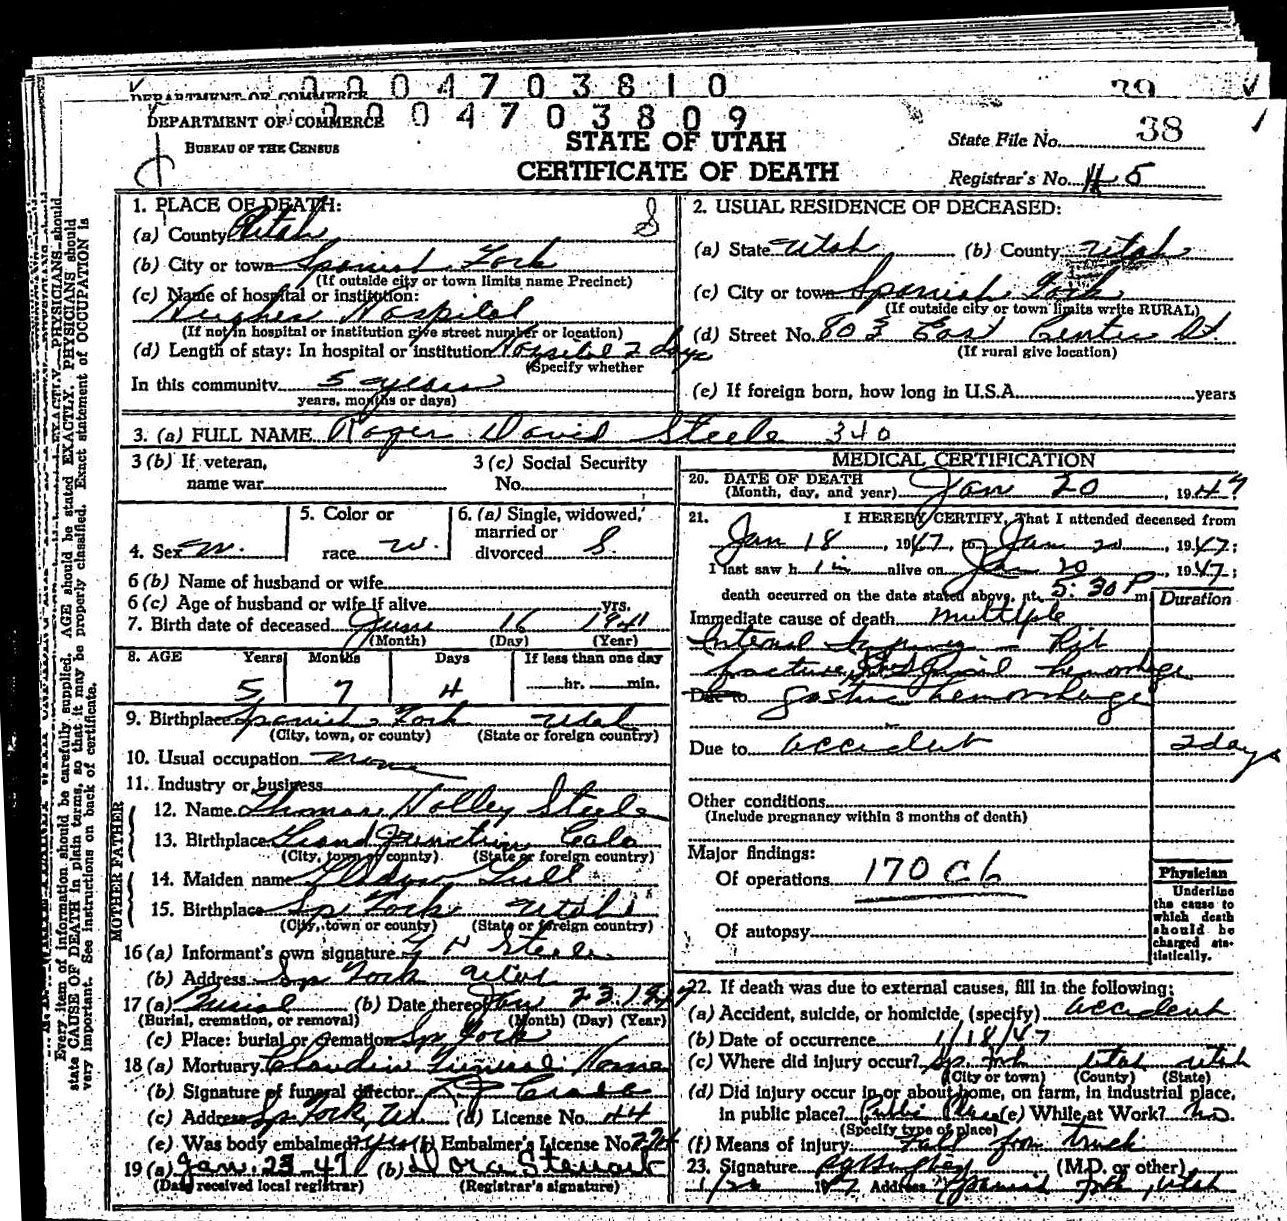 DEPARTMENT OF COMMERCE
0 0 0 4 7 0 3 8 1 0
39
DEPARTMENT OF COMMERCE
0 0 0 4 7 0 3 8 0 9
BUREAU OF THE CENSUS
STATE OF UTAH
CERTIFICATE OF DEATH
State File No. 38
Registrar's No. # 5
1. PLACE OF DEATH:
(a) County Utah
(b) City or town Spanish Fork
(If outside city or town limits name Precinct)
(c) Name of hospital or institution:
Hughes Hospital
(If not in hospital or institution give street number or location)
(d) Length of stay: In hospital or institution Hospital 2 days
(Specify whether
In this community 5 years
years, months or days)
2. USUAL RESIDENCE OF DECEASED:
(a) State Utah (b) County Utah
(c) City or town Spanish Fork
(If outside city or town limits write RURAL)
(d) Street No. 803 East Center St.
(If rural give location)
(e) If foreign born, how long in U.S.A. years
3. (a) FULL NAME Roger David Steele 340
3 (b) If veteran, name war
3 (c) Social Security No.
4. Sex m. 5. Color or race w. 6. (a) Single, widowed, married or divorced S.
6 (b) Name of husband or wife
6 (c) Age of husband or wife if alive yrs.
7. Birth date of deceased June 16 1941
(Month) (Day) (Year)
8. AGE Years Months Days If less than one day
5 7 4 hr. min.
9. Birthplace Spanish Fork Utah
(City, town, or county) (State or foreign country)
10. Usual occupation none
11. Industry or business
FATHER
12. Name Thomas Holley Steele
13. Birthplace Grand Junction Colo
(City, town or county) (State or foreign country)
MOTHER
14. Maiden name Gladys
15. Birthplace Sp. Fork Utah
(City, town or county) (State or foreign country)
16 (a) Informant's own signature T H Steele
(b) Address Sp Fork Utah
17 (a) Burial (b) Date thereof Jan 23 1947
(Burial, cremation, or removal) (Month) (Day) (Year)
(c) Place: burial or cremation Sp. Fork
18 (a) Mortuary Claudin Funeral Home
(b) Signature of funeral director
(c) Address Sp Fork, Ut. (d) License No. 44
(e) Was body embalmed? yes (f) Embalmer's License No. 224
19 (a) Jan. 23 - 47 (b) Dora Stewart
(Date received local registrar) (Registrar's signature)
MEDICAL CERTIFICATION
20. DATE OF DEATH
(Month, day, and year) Jan 20, 1947
21. I HEREBY CERTIFY, That I attended deceased from
Jan 18, 1947, to Jan 20, 1947;
I last saw him alive on Jan 20, 1947;
death occurred on the date stated above, at 5:30 P m.
Duration
Immediate cause of death multiple
Internal Injury - Rib
fracture, hemorrhage
Due to gastric hemorrhage
Due to accident 2 days
Other conditions
(Include pregnancy within 3 months of death)
Major findings:
Of operations 170 C b
Of autopsy
Physician
Underline the cause to which death should be charged statistically.
22. If death was due to external causes, fill in the following:
(a) Accident, suicide, or homicide (specify) accident
(b) Date of occurrence 1/18/47
(c) Where did injury occur? Sp. Frk Utah Utah
(City or town) (County) (State)
(d) Did injury occur in or about home, on farm, in industrial place,
in public place? Public Place (e) While at Work? no.
(Specify type of place)
(f) Means of injury Fall from truck
23. Signature (M.D. or other)
Address Spanish Frk, Utah
Every item of information should be carefully supplied. AGE should be stated EXACTLY. PHYSICIANS should
state CAUSE OF DEATH in plain terms, so that it may be properly classified. Exact statement of OCCUPATION is
very important. See instructions on back of certificate.